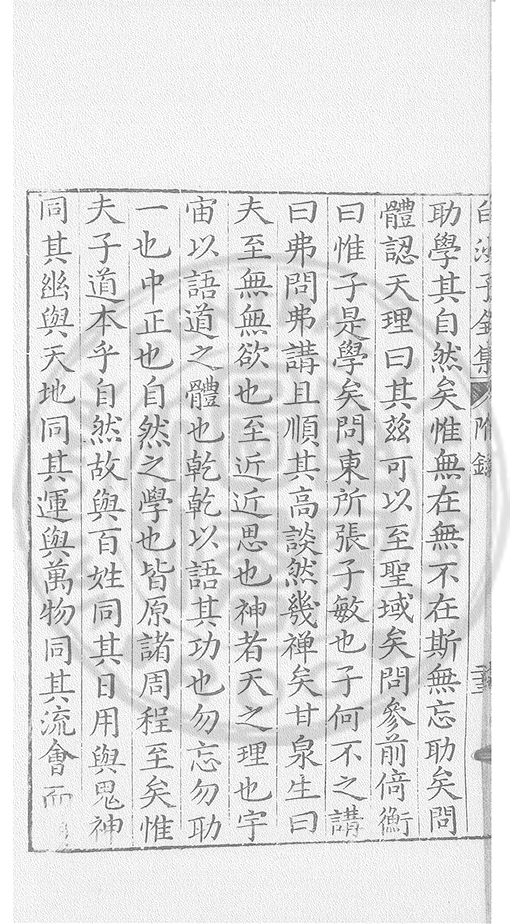 白沙子全集 附錄
助學其自然矣惟無在無不在斯無忘助矣問
體認天理曰其茲可以至聖域矣問參前倚衡
曰惟子是學矣問東所張子敏也子何不之講
曰弗問弗講且順其高談然幾禪矣甘泉生曰
夫至無無欲也至近近思也神者天之理也宇
宙以語道之體也乾乾以語其功也勿忘勿助
一也中正也自然之學也皆原諸周程至矣惟
夫子道本乎自然故與百姓同其日用與鬼神
同其幽與天地同其運與萬物同其流會而